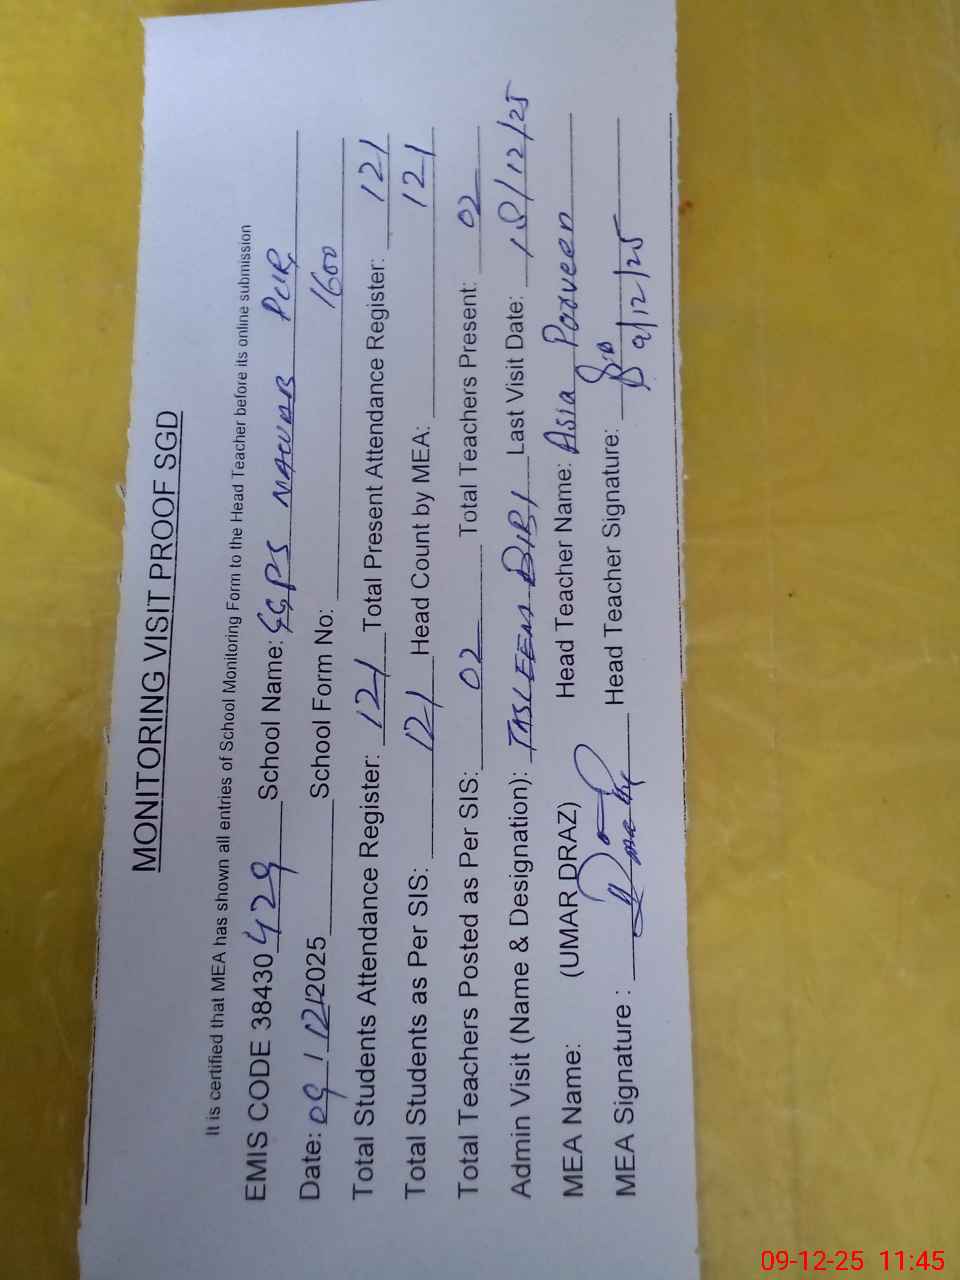 MONITORING VISIT PROOF SGD
It is certified that MEA has shown all entries of School Monitoring Form to the Head Teacher before its online submission
EMIS CODE 38430429 School Name: GGPS PUR
Date: 09/12/2025 School Form No: 1600
Total Students Attendance Register: 121 Total Present Attendance Register: 121
Total Students as Per SIS: 121 Head Count by MEA: 121
Total Teachers Posted as Per SIS: 02 Total Teachers Present: 02
Admin Visit (Name & Designation): TASLEEM BIBI Last Visit Date: /12/25
MEA Name: (UMAR DRAZ) Head Teacher Name: Asia Parveen
MEA Signature : Head Teacher Signature:
9/12/25
09-12-25 11:45